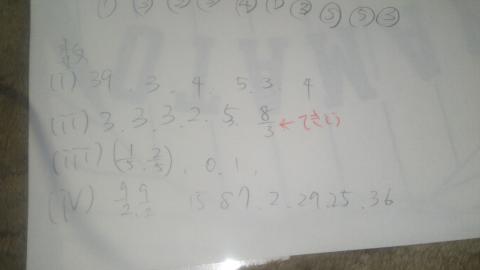 ① ③ ② ③ ④ ① ③ ⑤ ⑤ ③
(i) 39 . 3 . 4 . 5. 3. 4
(ii) 3. 3. 3. 2. 5. 8/3 ←
(iii) (1/5, 2/5) . 0. 1.
(iv) 9/2. 9/2 15 87. 2. 29. 25. 36